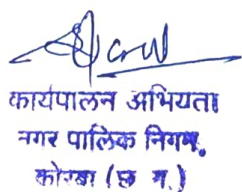 कार्यपालन अभियंता
नगर पालिक निगम,
कोरबा (छ ग.)